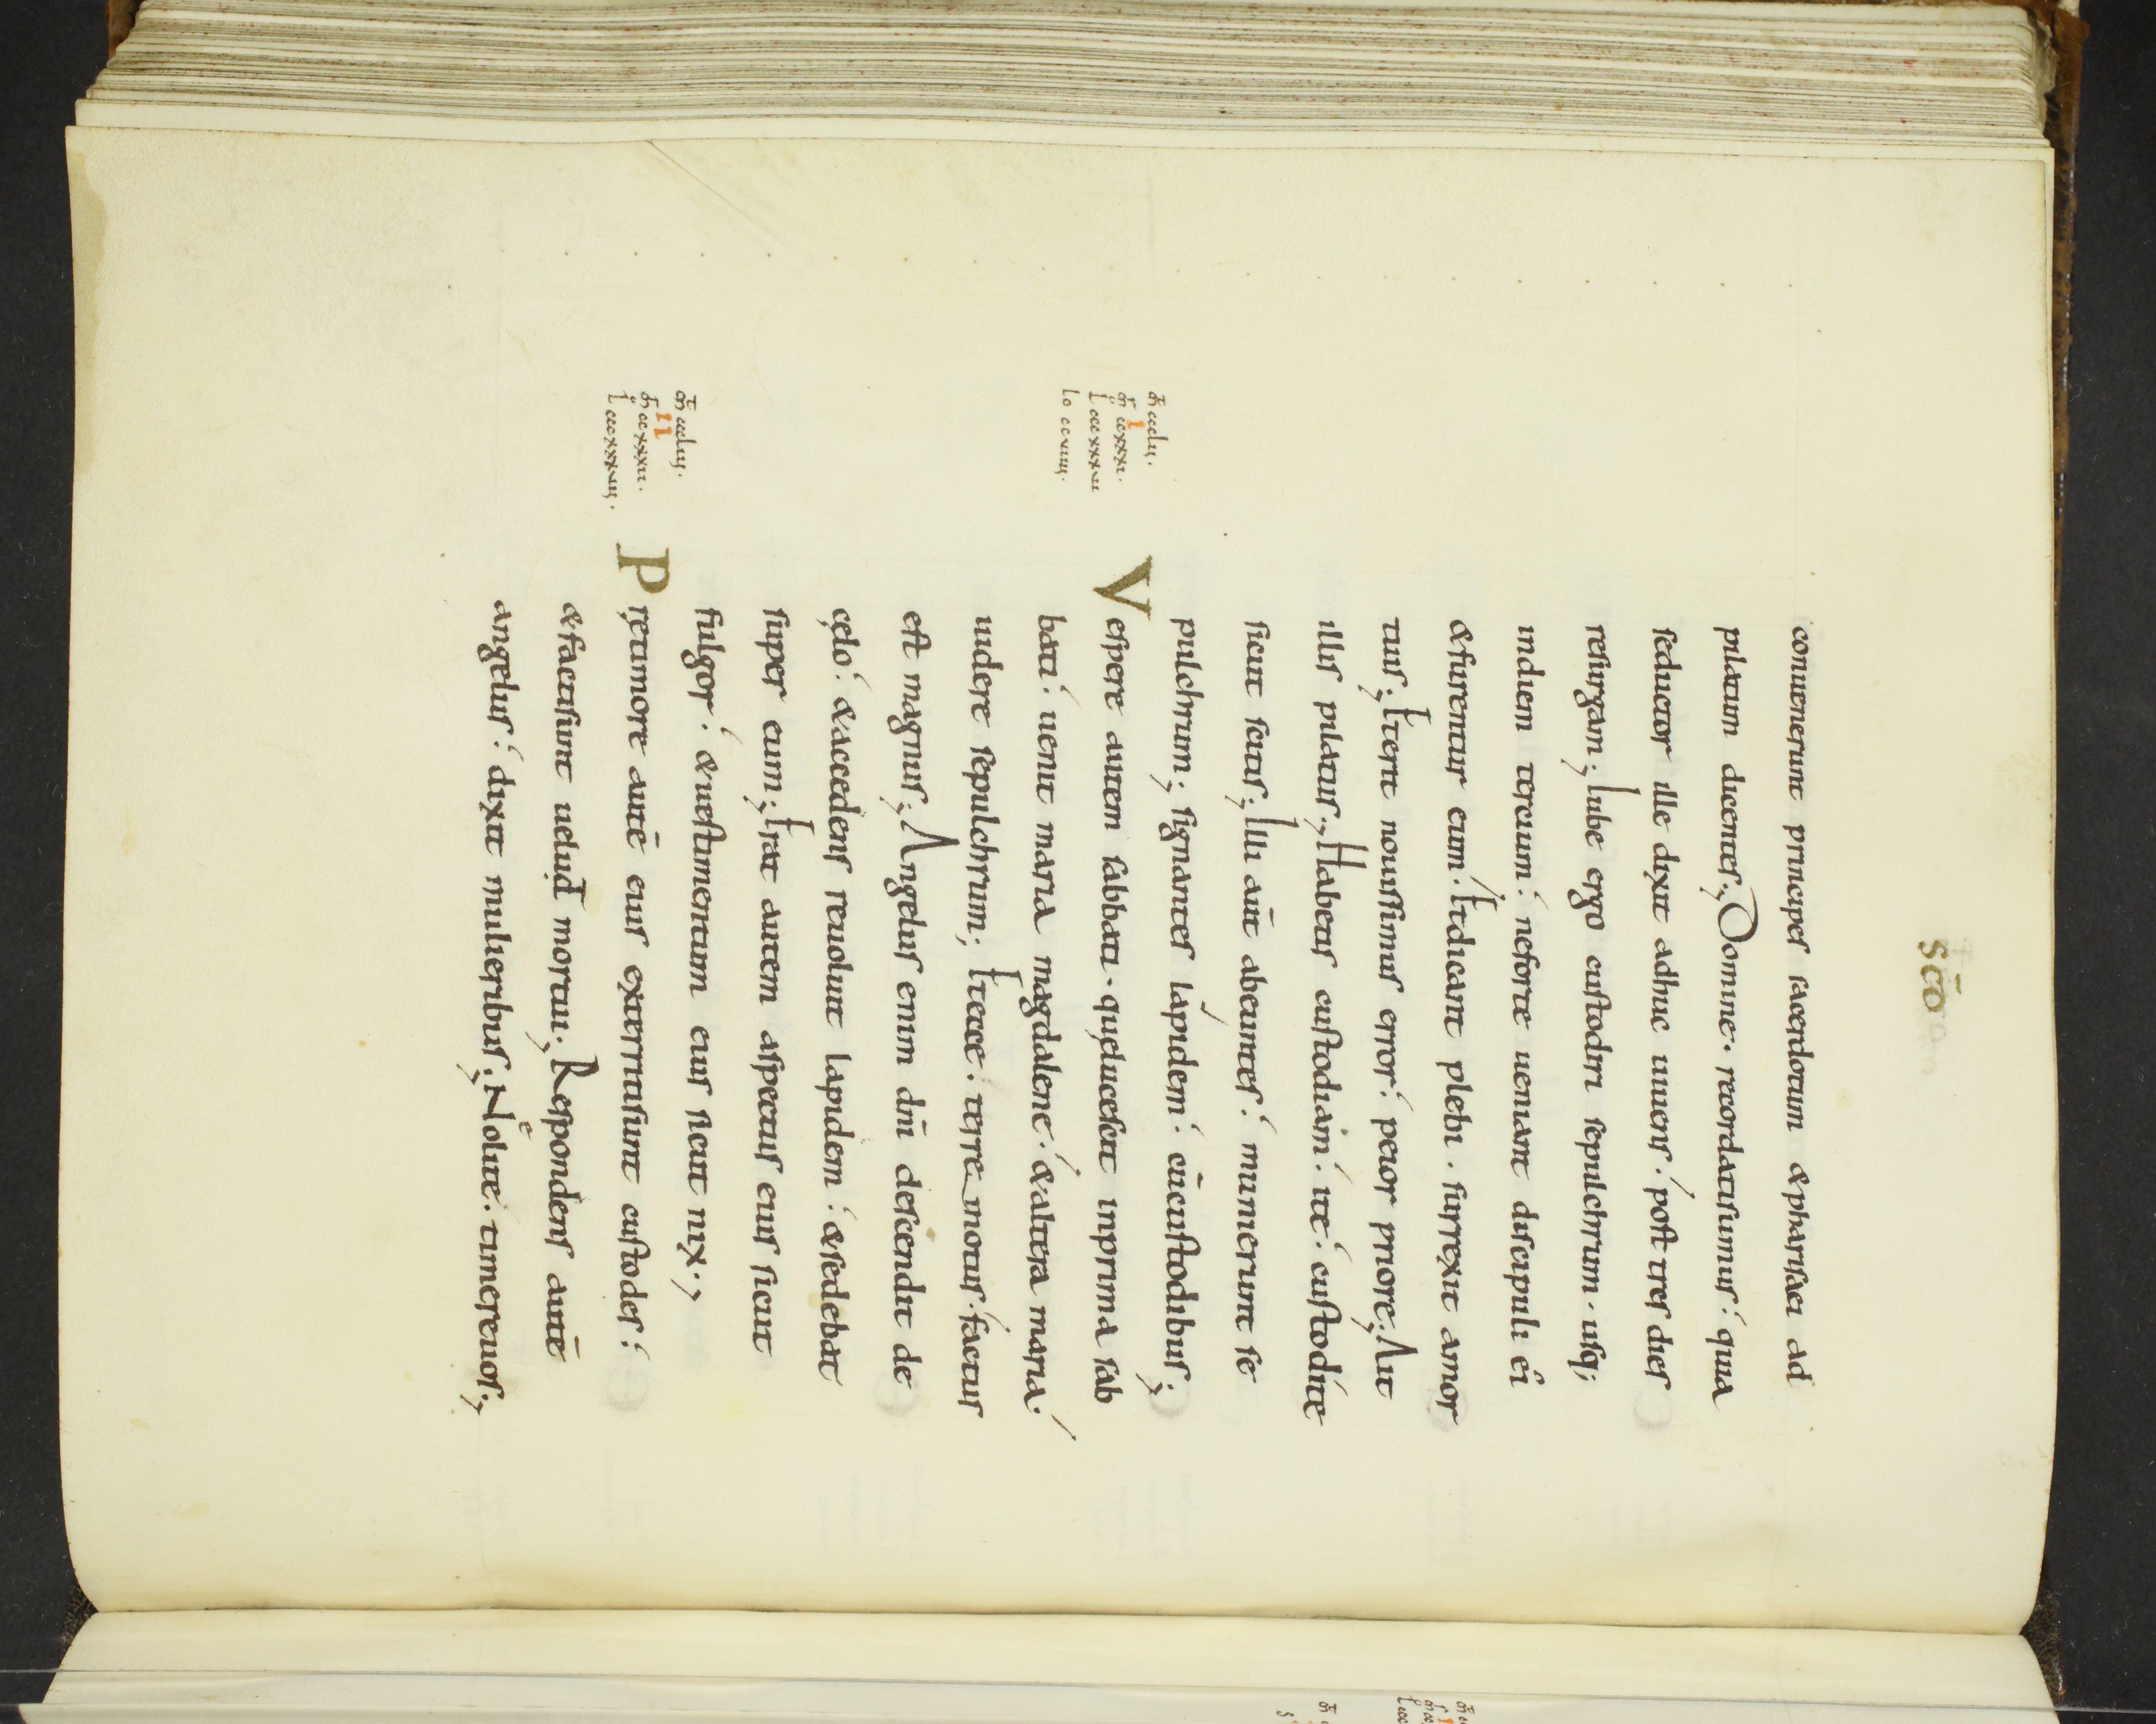 SCD̄O
conuenerunt principes sacerdotum &pharisaei ad
pilatum dicentes; Domine. recordatisumus: quia
seductor ille dixit adhuc uiuens. post tres dies
resurgam; Iube ergo custodiri sepulchrum. usq;
indiem tercium: neforte ueniant discipuli ei
&furentur eum. Etdicant plebi. surrexit amor
tuis; Eterit nouissimus error: peior priore; Ait
illis pilatus; Habetis custodiam. ite. custodite
sicut scitis; Illi aūt abeuntes: munierunt se
pulchrum; signantes lapidem. cūcustodibus;
Vespere autem sabbati. quęlucescit inprima sab
bati: uenit maria magdalene. &altera maria.
uidere sepulchrum; Etecce. terre motus. factus
est magnus; Angelus enim dnī descendit de
cęlo: &accedens reuoluit lapidem: &sedebat
super eum; Erat autem aspectus eius sicut
fulgor: &uestimentum eius sicut nix;
Prętimore autē eius exterritisunt custodes:
&factisunt uelud mortui; Respondens autē
angelus: dixit mulieribus; Nolite. timereuos;